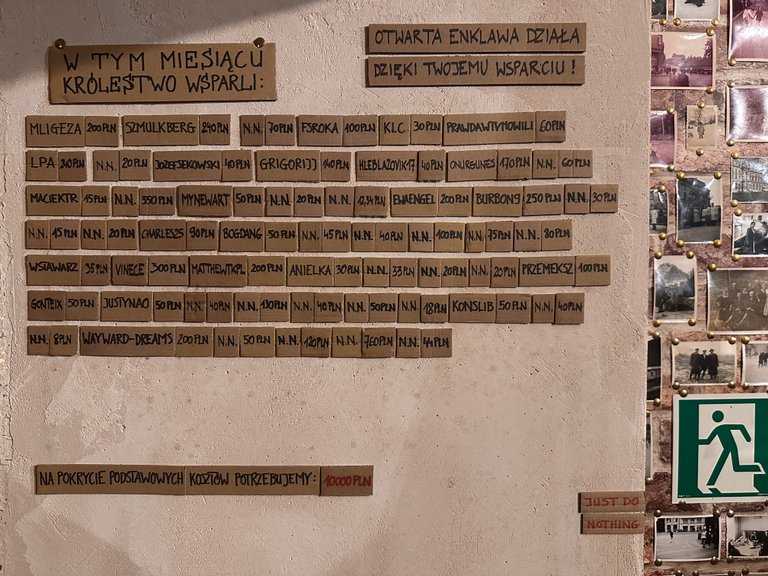 W TYM MIESIĄCU
KRÓLESTWO WSPARLI:
OTWARTA ENKLAWA DZIAŁA
DZIĘKI TWOJEMU WSPARCIU!
MLIGEZA 200PLN SZMULKBERG 240PLN N.N. 70PLN FSROKA 100PLN KLC 30PLN PRAWDAWTVNOWILI 60PLN
LPA N.N. 20PLN JOZEFJEKOWSKI 40PLN GRIGORIJJ 140PLN HLEBLAZOVIK17 40PLN ONURGUNES 170PLN N.N. 60PLN
MACIEKTR 15PLN N.N. 350PLN MYNEWART 50PLN N.N. 20PLN N.N. 12,34PLN EWAENGEL 200PLN BURBON9 250PLN N.N. 30PLN
N.N. 15PLN N.N. 20PLN CHARLES25 90PLN BOGDANG 50PLN N.N. 45PLN N.N. 40PLN N.N. 100PLN N.N. 75PLN N.N. 80PLN
WSTAWARZ 35PLN VINECE 300PLN MATTHEWTKPL 200PLN ANIELKA 30PLN N.N. 33PLN N.N. 20PLN N.N. 20PLN PRZEMEKSZ 100PLN
GONTBIX 50PLN JUSTYNAO 50PLN N.N. 40PLN N.N. 130PLN N.N. 40PLN N.N. 50PLN N.N. 18PLN KONSLIB 50PLN N.N. 40PLN
N.N. 8PLN WAYWARD-DREAMS 200PLN N.N. 50PLN N.N. 120PLN N.N. 760PLN N.N. 44PLN
NA POKRYCIE PODSTAWOWYCH KOSZTÓW POTRZEBUJEMY: 10000PLN
JUST DO
NOTHING